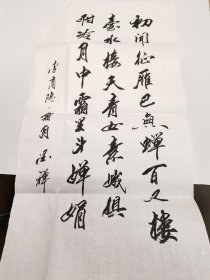 初闻征雁已無蝉百尺楼
臺水接天青女素娥俱
耐冷月中霜里斗婵娟
李商隐